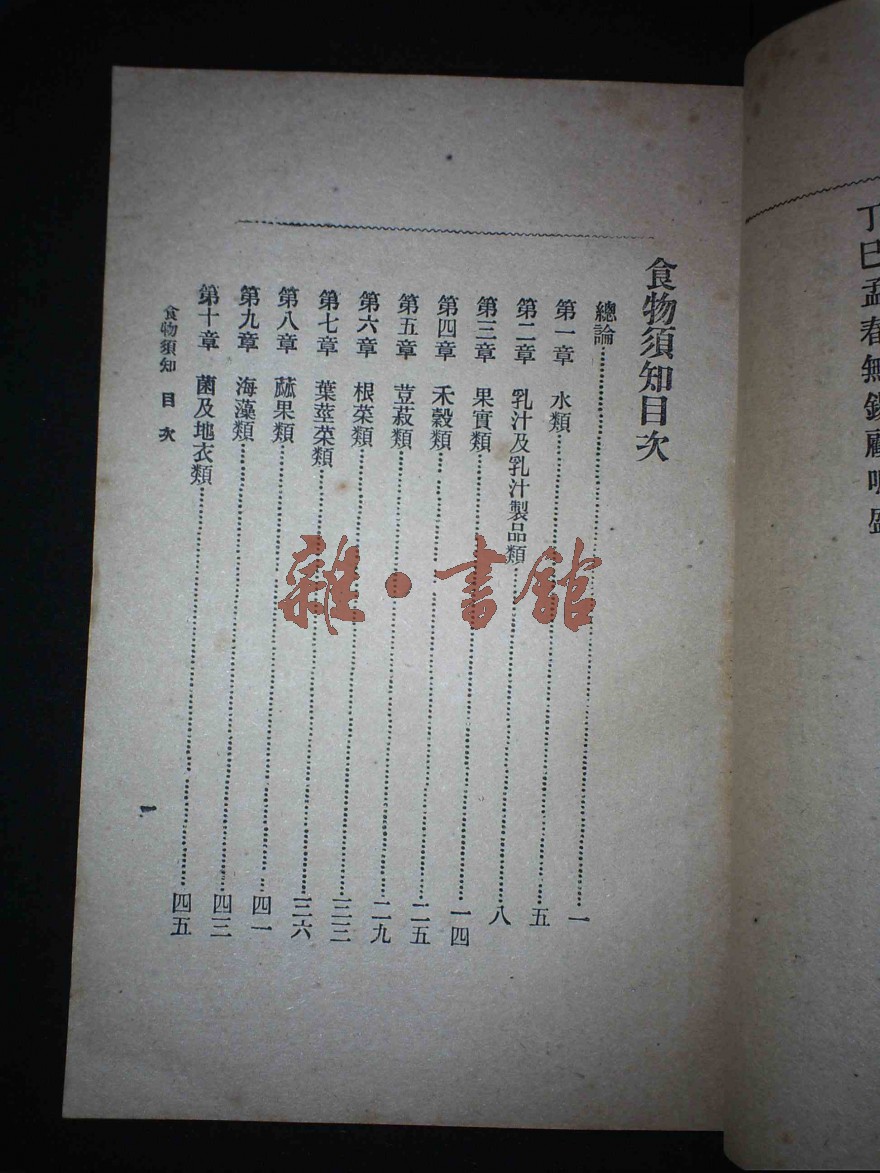 丁巳孟春無錫顧鳴盛
食物須知目次
總論……一
第一章 水類……五
第二章 乳汁及乳汁製品類……八
第三章 果實類……一四
第四章 禾穀類……二五
第五章 荳菽類……二九
第六章 根菜類……三三
第七章 葉莖菜類……三六
第八章 蓏果類……四一
第九章 海藻類……四三
第十章 菌及地衣類……四五
食物須知 目次
一
雜·書館